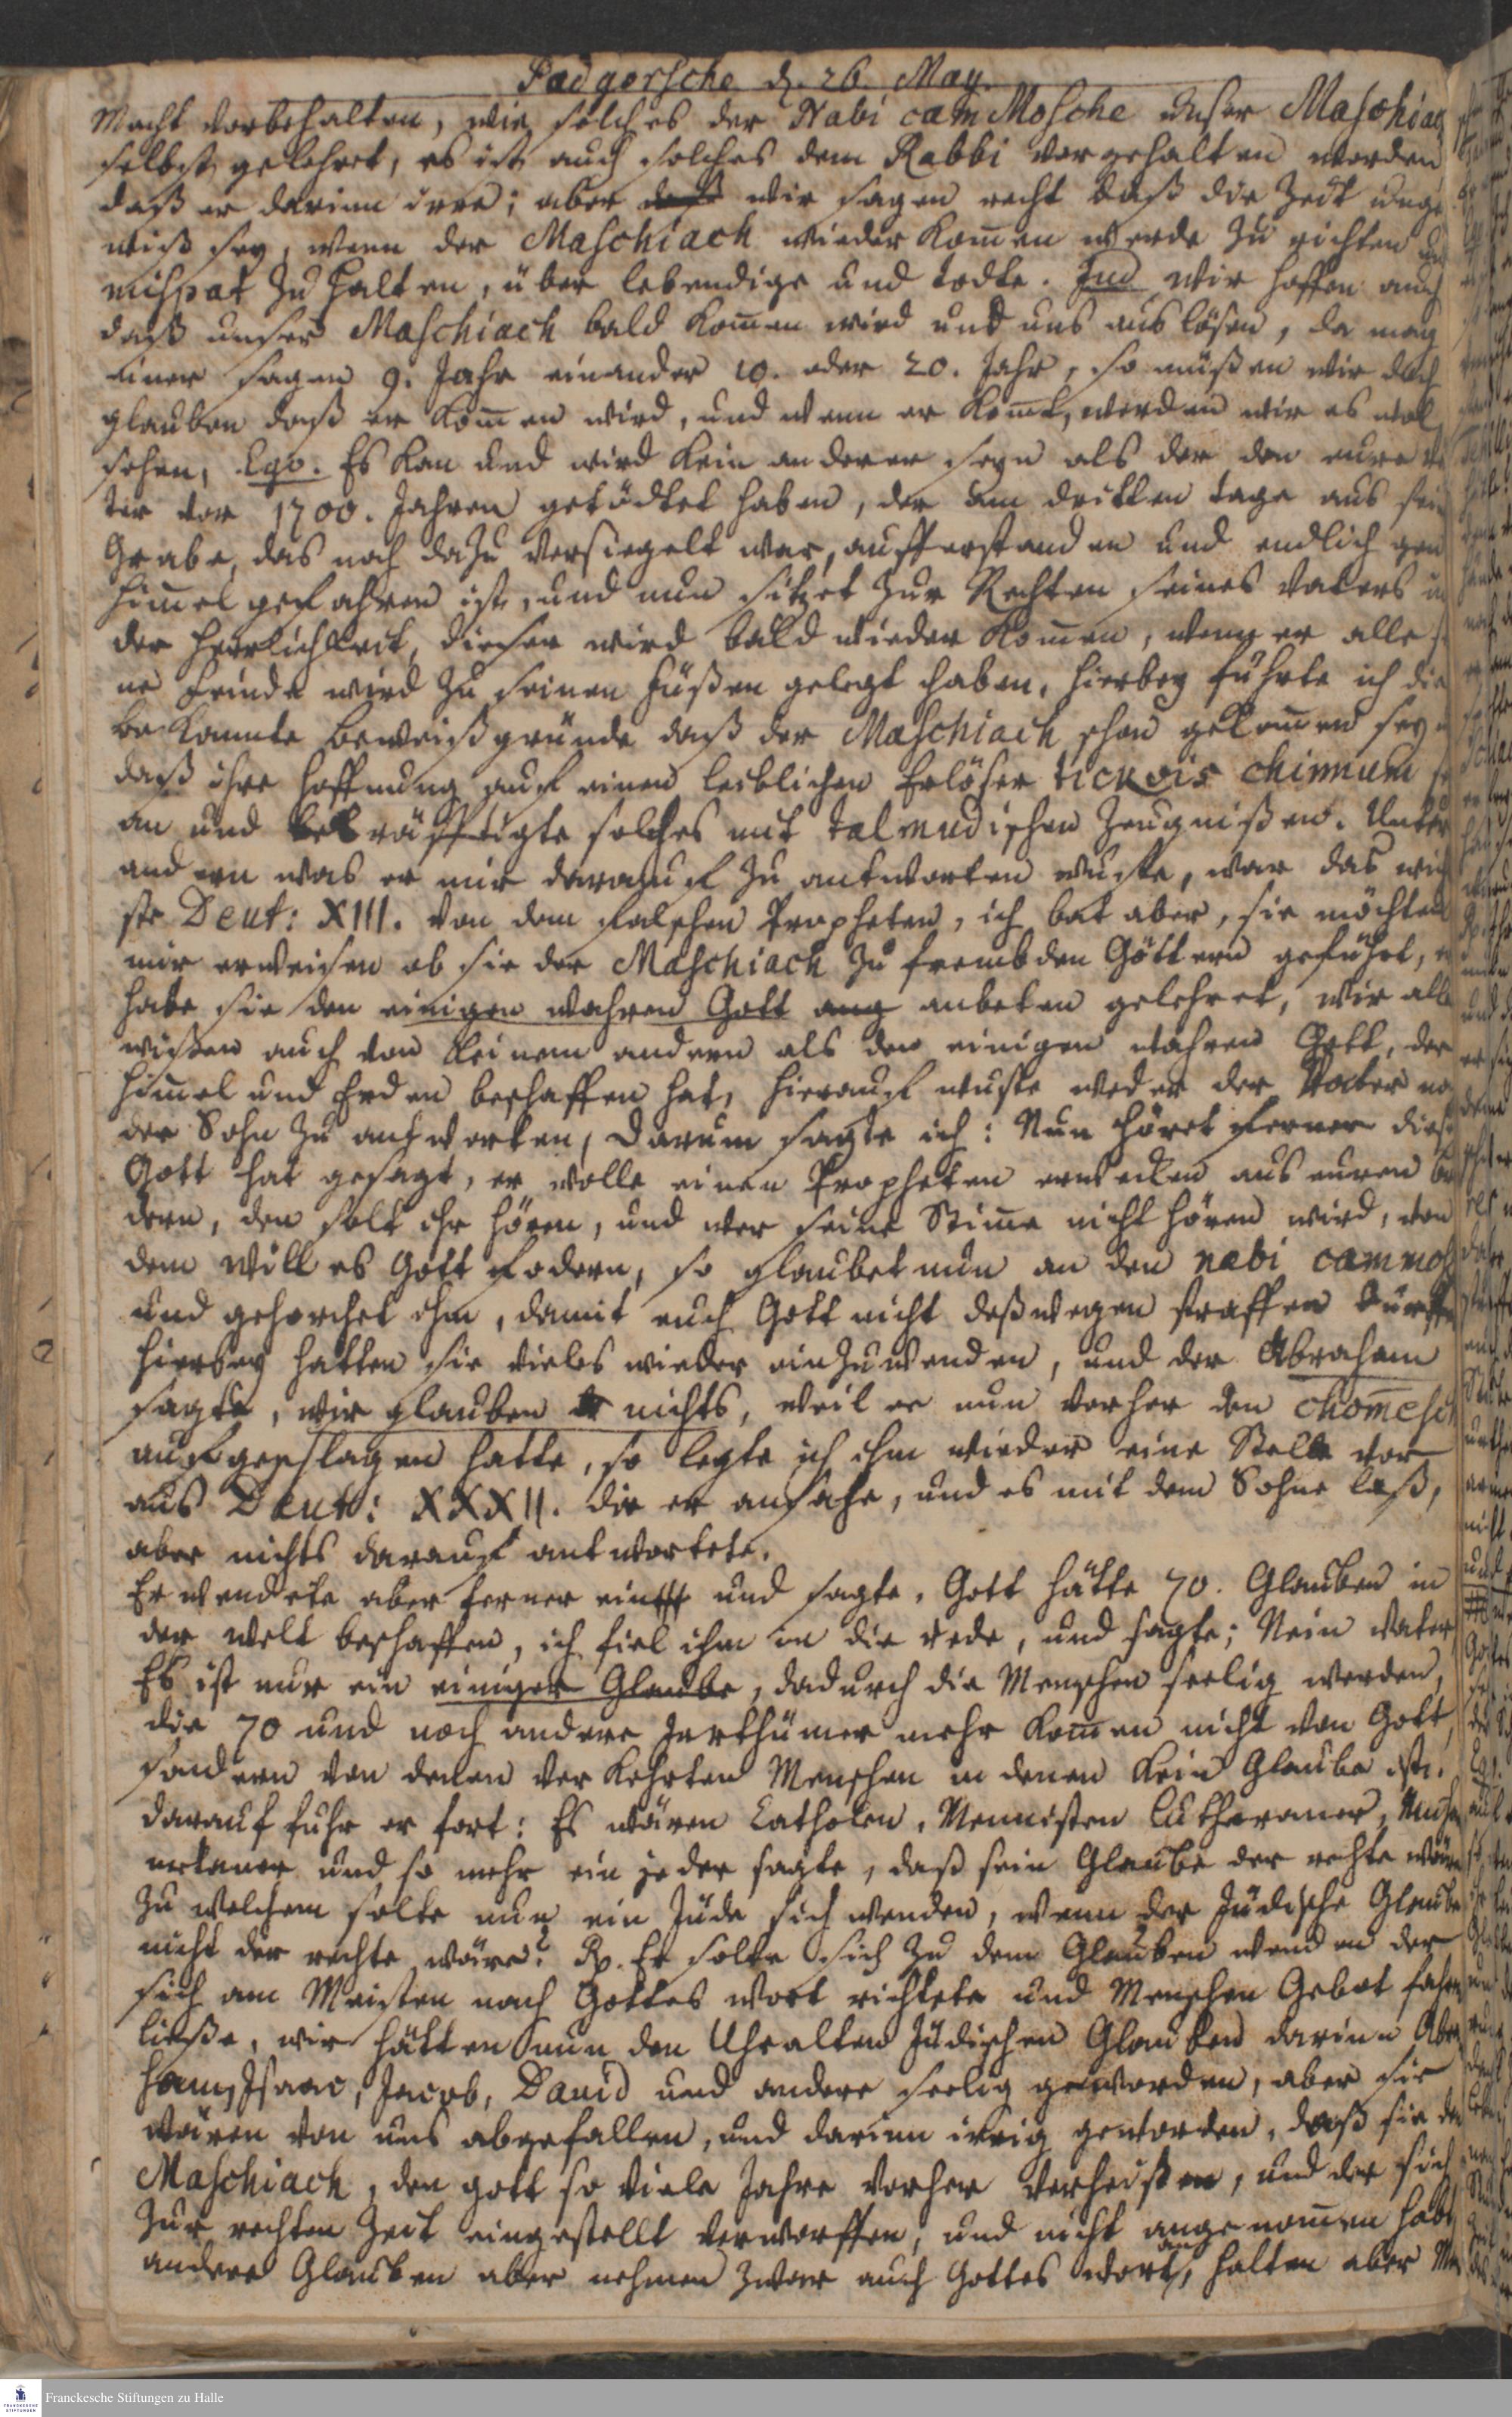 Padgorsche d. 26. May.
Macht vorbehalten, wie solches der Nabi cam Mosche unser Maschiach
selbst gelehret, es ist auch solches dem Rabbi vorgehalten worden
daß er darinn irre; aber wir sagen recht daß die Zeit unge
wiß sey, wenn der Maschiach wieder kom̄en werde zu richten
mispat zu halten, über lebendige und todte. Jud. Wir hoffen auch
daß unser Maschiach bald kom̄en wird und uns auslösen, da mag
einer sagen 9. Jahr einander 10. oder 20. Jahr, so müßen wir doch
glauben daß er kom̄en wird, und wenn er kom̄t, werden wir es wol
sehen, Ego. Es kan und wird kein anderer seyn als der den eure Vä
ter vor 1700. Jahren getödtet haben, der am dritten tage aus sein
Grabe, das noch dazu versiegelt war, aufferstanden und endlich gen
Him̄el gefahren ist, und nun sitzet zur Rechten seines Vaters in
der Herrlichkeit, dieser wird bald wieder kom̄en, wenn er alle sei
ne Feinde wird zu seinen Füßen gelegt haben, hierbey führte ich die
bekannte Beweißgründe daß der Maschiach schon gekom̄en sey
daß ihre Hoffnung auf einen leiblichen Erlöser tickvis chinnum
an und bekräfftigte solches mit talmudischen Zeugnißen. Unter
andern was er mir darauf zu antworten wuste, war das
ste Deut: XIII. von dem falschen Propheten, ich bat aber, sie möchten
mir erweisen ob sie der Maschiach zu frembden Göttern geführt, er
habe sie den einigen wahren Gott anbeten gelehret, wir alle
wißen auch von keinem andern als den einigen wahren Gott, der
Him̄el und Erden beschaffen hat, hierauf wuste weder der Vater noch
der Sohn zu antworten, Darum sagte ich: Nun höret ferner dies
Gott hat gesagt, er wolle einen Propheten erwecken aus euren Brü
dern, den solt ihr hören, und wer seine Stim̄e nicht hören wird, von
dem will es Gott fodern, so glaubet nun an den nabi cammos
und gehorchet ihm, damit euch Gott nicht deßwegen straffen dürffe
hierbey hatten sie vieles wieder einzuwenden, und der Abraham
sagte, wir glauben nichts, weil er nun vorher den chom̄esch
aufgeschlagen hatte, so legte ich ihm wieder eine Stelle vor
aus Deut: XXXII. die er ansahe, und es mit dem Sohne laß,
aber nichts darauf antwortete.
Er wendete aber ferner ein und sagte, Gott hätte 70. Glauben in
der welt beschaffen, ich fiel ihm in die rede, und sagte; Nein Vater
Es ist nur ein einiger Glaube, dadurch die Menschen seelig werden,
die 70 und noch andere Jrrthümer mehr kom̄en nicht von Gott,
sondern von denen verkehrten Menschen in denen kein Glaube ist.
darauf fuhr er fort: Es wären Catholen, Mennisten Lutheraner, Muha
metaner und so mehr ein jeder sagte, daß sein Glaube der rechte wäre
zu welchem solte nun ein Jude sich wenden, wenn der Jüdische Glaube
nicht der rechte wäre? Rp. Er solte sich zu dem Glauben wenden der
sich am Meisten nach Gottes wort richtete und Menschen Gebot fahren
ließe, wir hätten nun den Uhralten Jüdischen Glauben darinn Abra
ham, Isaac, Jacob, David und andere seelig geworden, aber sie
wären von uns abgefallen, und darinn irrig geworden, daß sie den
Maschiach, den gott so viele Jahre vorher verheißen, und der sich
zur rechten Zeit eingestellt verworffen, und nicht angenom̄en habe
andere Glauben aber nehmen zwar auch Gottes wort an, halten aber Men
Franckesche Stiftungen zu Halle